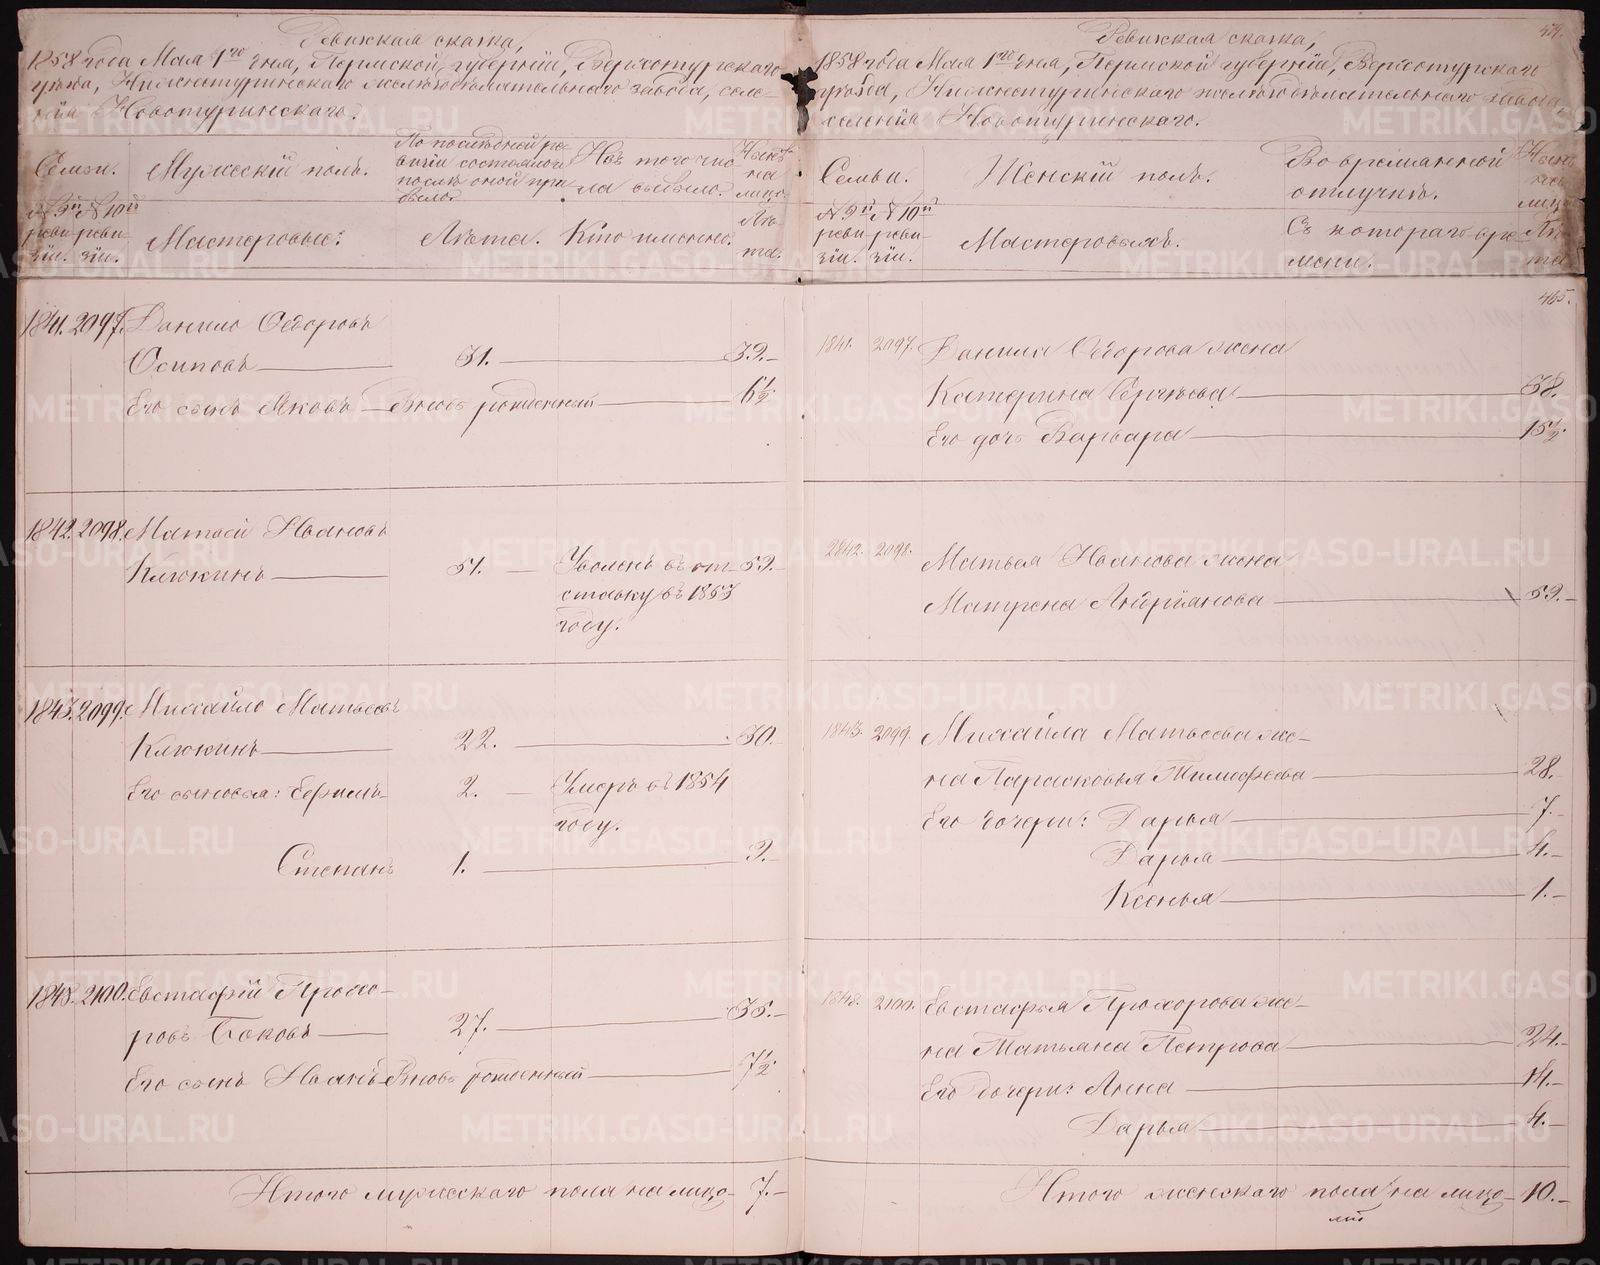 Ревижская сказка,
1858 года Мая 1го дня, Пермской губерніи, Верхотурскаго
уѣзда, Нижнетуринскаго желѣзодѣлательнаго завода, селе-
нія Новотуринскаго.
Семьи.
Мужескій полъ.
По послѣдней ре-
визіи состояло и
послѣ оной при-
было.
Изъ того чис-
ла выбыло.
Нынѣ
на
лицо.
№ 9й № 10й
реви- реви-
зіи. зіи.
Мастеровые:
Лѣта.
Кто именно.
Лѣ-
та.
1841. 2097. Данило Ѳедоровъ
Осиповъ 31. 39.
Его сынъ Яковъ Вновь рожденный 6½
1842. 2098. Матвей Ивановъ
Клюкинъ 51. Уволенъ въ от- 59.
ставку въ 1853
году.
1843. 2099. Михайло Матвеевъ
Клюкинъ 22. 30.
Его сыновья: Ефимъ 2. Умеръ въ 1854
году.
Степанъ 1. 9.
1848. 2100. Евстафій Прохо-
ровъ Боковъ 27. 35.
Его сынъ Иванъ Вновь рожденный 7½
Итого мужескаго пола на лицо 7.
59.
Ревижская сказка,
1858 года Мая 1го дня, Пермской губерніи, Верхотурскаго
уѣзда, Нижнетуринскаго желѣзодѣлательнаго завода
селенія Новотуринскаго.
Семьи.
Женскій полъ.
Во временной
отлучкѣ.
Нынѣ
на
лицо
№ 9й № 10й
реви- реви-
зіи. зіи.
Мастеровыхъ.
Съ котораго вре-
мени.
Лѣ-
та
465.
1841. 2097. Данила Ѳедорова жена
Катерина Сергѣева 38.
Его дочь Варвара 15½
2842. 2098. Матвея Иванова жена
Матрена Андріянова 59.
1843. 2099. Михайла Матвеева же-
на Парасковья Тимофеева 28.
Его дочери: Дарья 7.
Дарья 4.
Ксенья 1.
1848. 2100. Евстафья Прохорова же-
на Татьяна Петрова 24.
Его дочери: Анна 14.
Дарья 4.
Итого женскаго пола на лицо 10.
METRIKI.GASO-URAL.RU